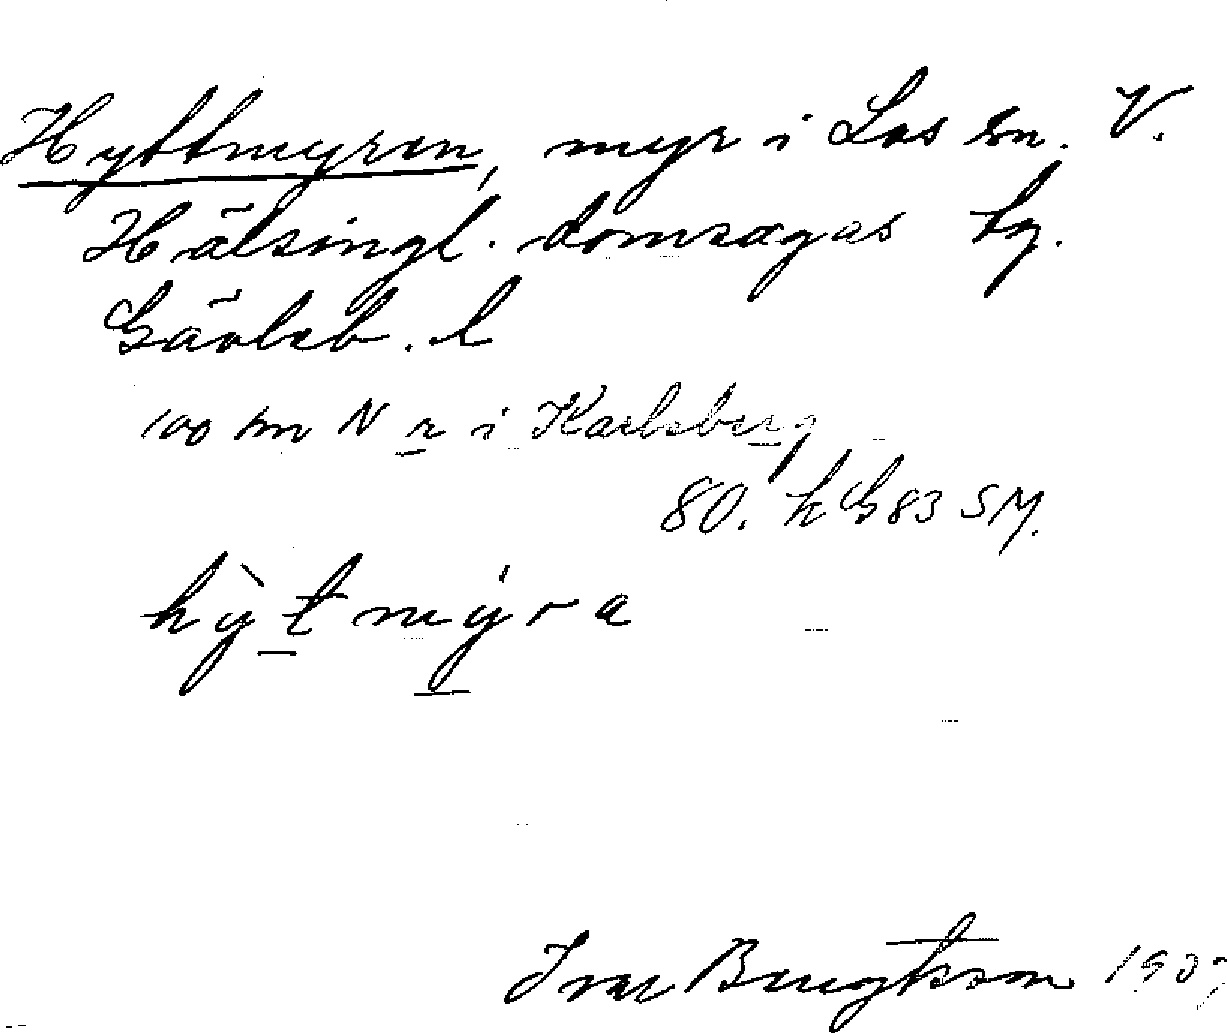 Hyttmyren, myr i Los sn. V.
Hälsingl. domsagas tg.
Gävleb. l
100 m N r i Karlsberg
80. h G 83 SM.
hỳt mýra
Ivar Bengtsson